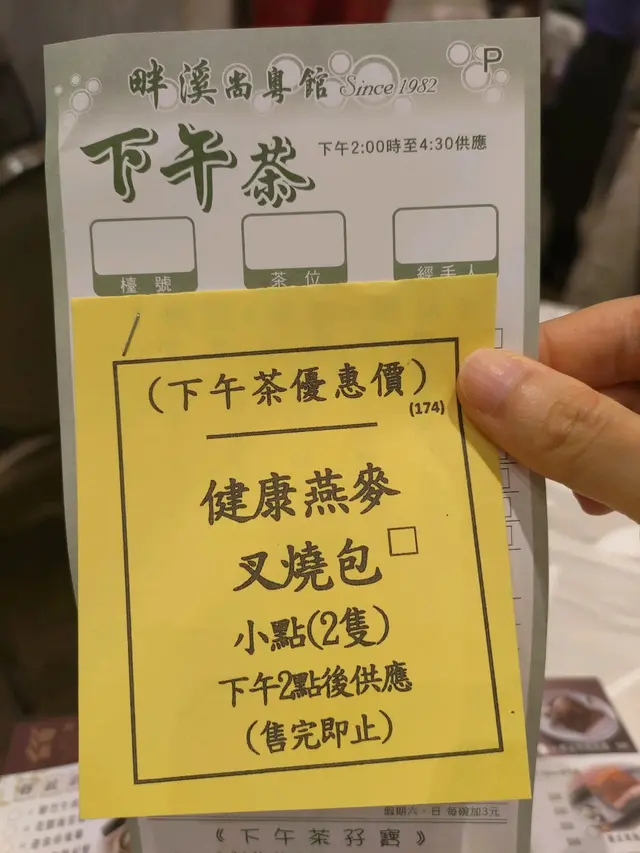 畔溪尚粵館 Since 1982
P
下午茶
下午2:00時至4:30供應
檯號
茶位
經手人
(下午茶優惠價)
(174)
健康燕麥
叉燒包
小點(2隻)
下午2點後供應
(售完即止)
假期六、日 每碗加3元
《下午茶孖寶》